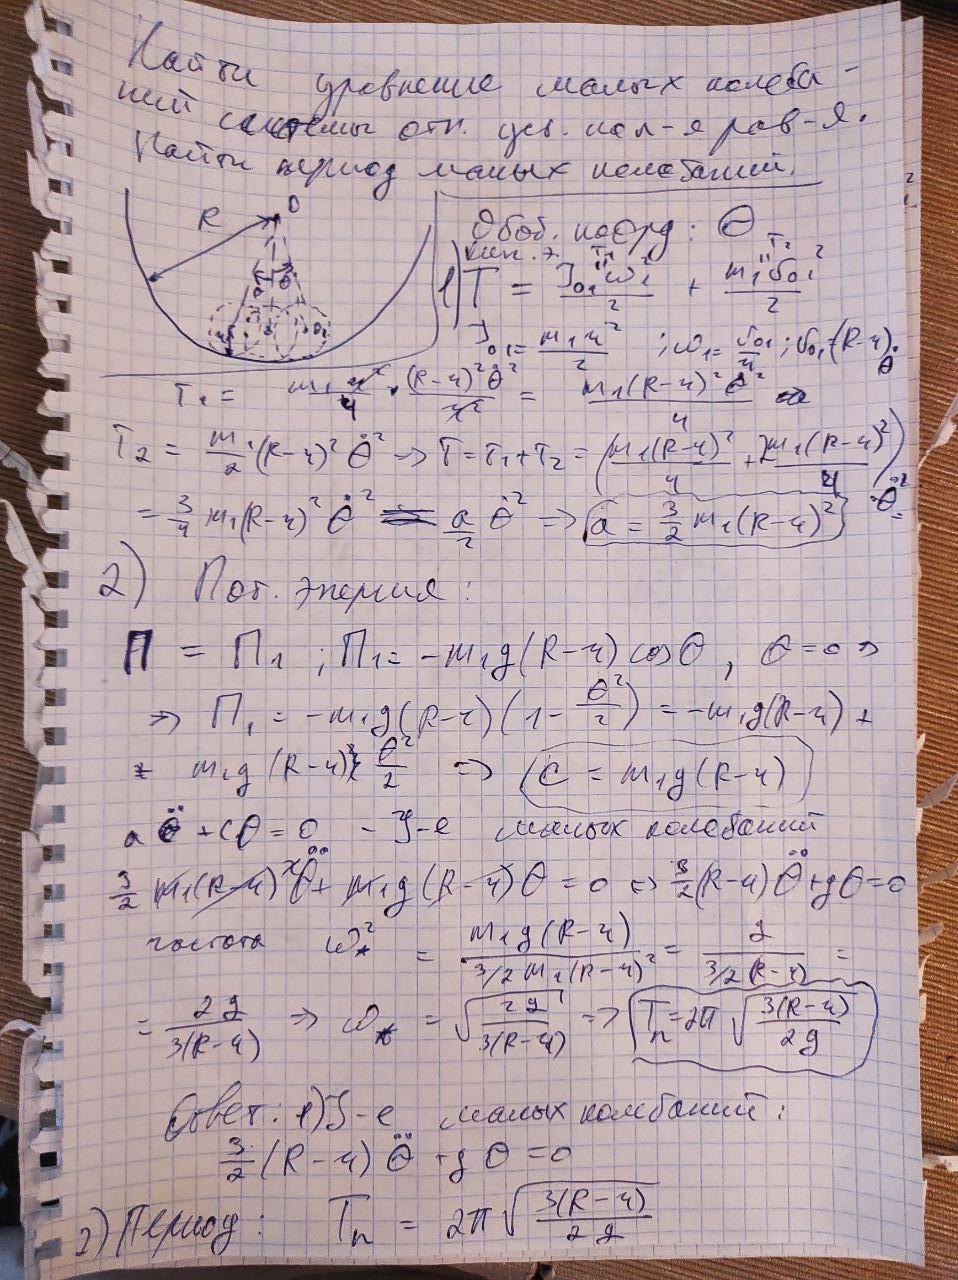 Найти уравнение малых колеба-
ний системы отн. уст. пол-я рав-я.
Найти период малых колебаний.
O
R
θ
Обоб. коорд: θ
кин. э.
1) T = J₀₁ω₁²/2 + m₁v₀₁²/2
T₁ T₂
J₀₁ = m₁r²/2 ; ω₁ = v₀₁/r ; v₀₁ = (R-r)θ̇
T₁ = m₁r²/4 · (R-r)²θ̈²/r² = m₁(R-r)²θ̈²/4
T₂ = m₁/2 · (R-r)² θ̈² → T = T₁ + T₂ = (m₁(R-r)²/4 + 2m₁(R-r)²/4) · θ̈² =
= 3/4 m₁(R-r)² θ̈² = a/2 θ̈² => a = 3/2 m₁(R-r)²
2) Пот. энергия:
П = П₁ ; П₁ = -m₁g(R-r) cosθ, θ=0 =>
=> П₁ = -m₁g(R-r)(1 - θ²/2) = -m₁g(R-r) +
+ m₁g(R-r) θ²/2 => C = m₁g(R-r)
aθ̈ + Cθ = 0 - У-е малых колебаний
3/2 m₁(R-r)²θ̈ + m₁g(R-r)θ = 0 <=> 3/2(R-r)θ̈ + gθ = 0
частота ω*² = m₁g(R-r) / 3/2 m₁(R-r)² = g / 3/2(R-r) =
= 2g/3(R-r) => ω* = √(2g/3(R-r)) => Tп = 2π √(3(R-r)/2g)
Ответ: 1) У-е малых колебаний:
3/2 (R-r) θ̈ + g θ = 0
2) Период: Tп = 2π √(3(R-r)/2g)